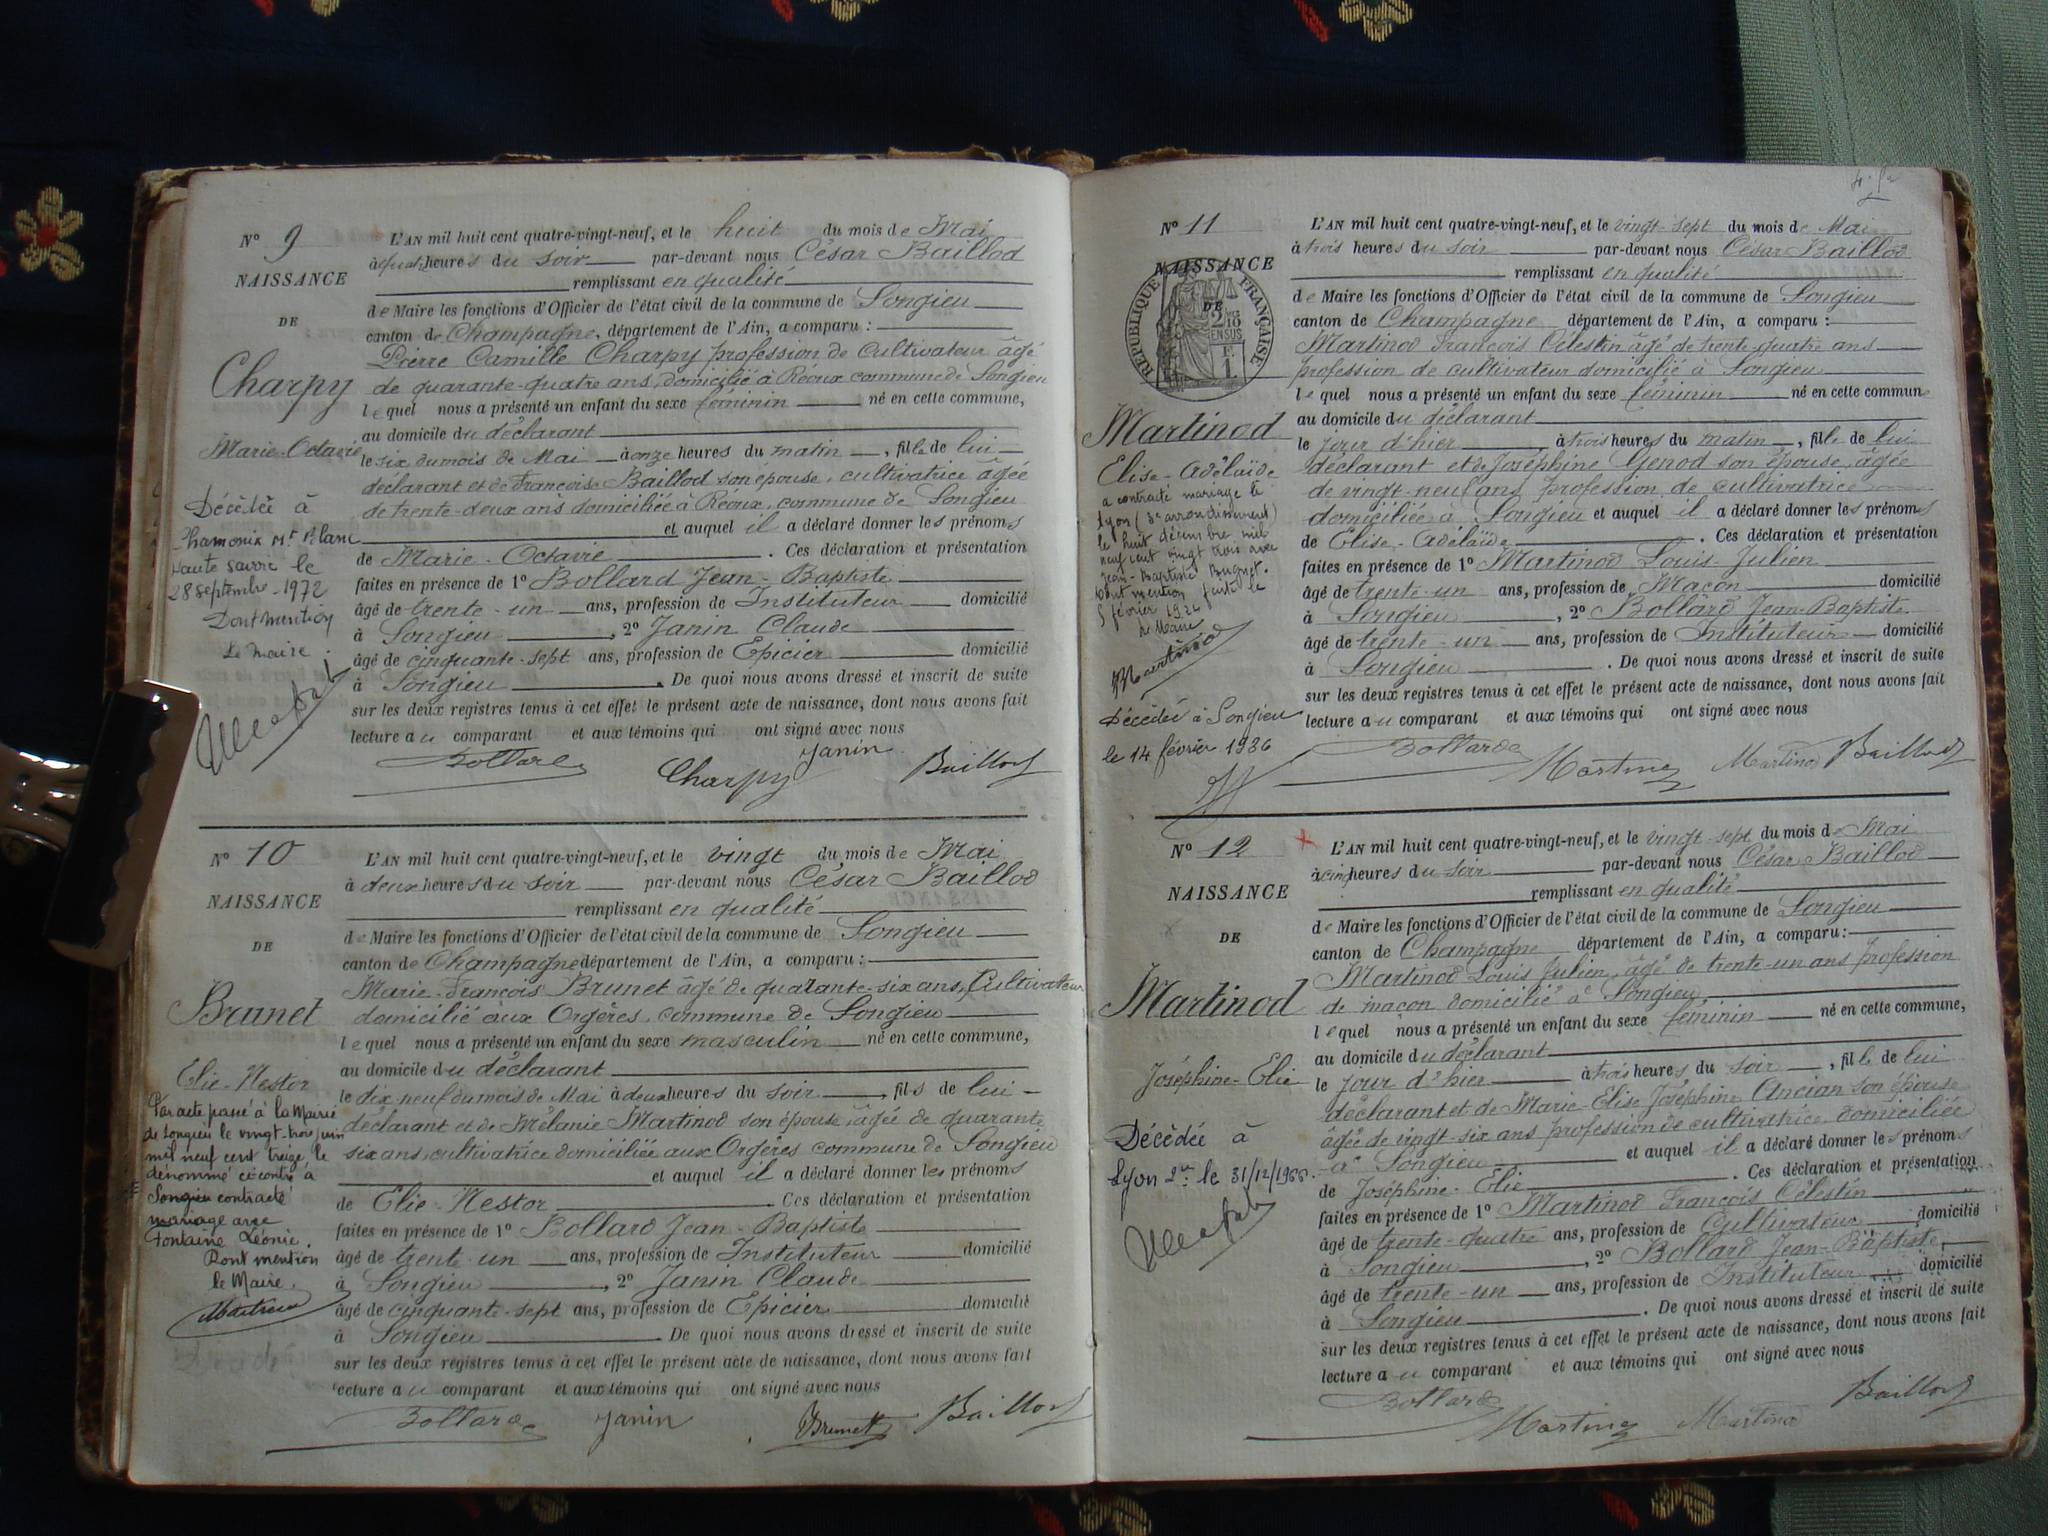 N° 9
NAISSANCE
DE
Charpy
Marie-Octavie
Décédée à
Chamonix Mt Blanc
Haute Savoie le
28 septembre 1972
Dont mention
Le Maire.
L'AN mil huit cent quatre-vingt-neuf, et le huit du mois de Mai
à quatre heures du soir par-devant nous César Baillod
remplissant en qualité
de Maire les fonctions d'Officier de l'état civil de la commune de Songieu
canton de Champagne, département de l'Ain, a comparu :
Pierre Camille Charpy profession de cultivateur âgé
de quarante-quatre ans, domicilié à Réoux commune de Songieu
lequel nous a présenté un enfant du sexe féminin né en cette commune,
au domicile du déclarant
le six du mois de Mai à onze heures du matin, fille de lui
déclarant et de Françoise Baillod son épouse, cultivatrice âgée
de trente-deux ans domiciliée à Réoux, commune de Songieu
et auquel il a déclaré donner les prénoms
de Marie-Octavie. Ces déclaration et présentation
faites en présence de 1° Bollard Jean-Baptiste
âgé de trente-un ans, profession de Instituteur domicilié
à Songieu, 2° Janin Claude
âgé de cinquante-sept ans, profession de Epicier domicilié
à Songieu. De quoi nous avons dressé et inscrit de suite
sur les deux registres tenus à cet effet le présent acte de naissance, dont nous avons fait
lecture au comparant et aux témoins qui ont signé avec nous
Bollard Charpy Janin Baillod
N° 10
NAISSANCE
DE
Brunet
Elie-Nestor
Par acte passé à la Mairie
de Songieu le vingt-trois juin
mil neuf cent treize, le
dénommé ci contre à
Songieu contracté
mariage avec
Fontaine Léonie.
Dont mention
le Maire.
L'AN mil huit cent quatre-vingt-neuf, et le vingt du mois de Mai
à deux heures du soir par-devant nous César Baillod
remplissant en qualité
de Maire les fonctions d'Officier de l'état civil de la commune de Songieu
canton de Champagne département de l'Ain, a comparu :
Marie-François Brunet âgé de quarante-six ans, Cultivateur
domicilié aux Orgères, commune de Songieu
lequel nous a présenté un enfant du sexe masculin né en cette commune,
au domicile du déclarant
le dix-neuf du mois de Mai à deux heures du soir, fils de lui
déclarant et de Mélanie Martinod son épouse, âgée de quarante
six ans, cultivatrice domiciliée aux Orgères commune de Songieu
et auquel il a déclaré donner les prénoms
de Elie-Nestor. Ces déclaration et présentation
faites en présence de 1° Bollard Jean-Baptiste
âgé de trent-un ans, profession de Instituteur domicilié
à Songieu, 2° Janin Claude
âgé de cinquante-sept ans, profession de Epicier domicilié
à Songieu. De quoi nous avons dressé et inscrit de suite
sur les deux registres tenus à cet effet le présent acte de naissance, dont nous avons fait
lecture au comparant et aux témoins qui ont signé avec nous
Bollard Janin Brunet Baillod
N° 11
NAISSANCE
DE
RÉPUBLIQUE FRANÇAISE
Martinod
Elise-Adélaïde
a contracté mariage le
Lyon (3e arrondissement)
le huit décembre mil
neuf cent vingt trois avec
Jean-Baptiste Bugnet.
Dont mention faite le
5 février 1924
le Maire
Martinod
Décédée à Songieu
le 14 février 1986
L'AN mil huit cent quatre-vingt-neuf, et le vingt-sept du mois de Mai
à trois heures du soir par-devant nous César Baillod
remplissant en qualité
de Maire les fonctions d'Officier de l'état civil de la commune de Songieu
canton de Champagne département de l'Ain, a comparu :
Martinod François Célestin âgé de trente-quatre ans
profession de cultivateur domicilié à Songieu
lequel nous a présenté un enfant du sexe féminin né en cette commune
au domicile du déclarant
le jour d'hier à trois heures du matin, fille de lui
déclarant et de Joséphine Genod son épouse, âgée
de vingt-neuf ans profession de cultivatrice
domiciliée à Songieu et auquel il a déclaré donner les prénoms
de Elise-Adélaïde. Ces déclaration et présentation
faites en présence de 1° Martinod Louis-Julien
âgé de trente-un ans, profession de Maçon domicilié
à Songieu, 2° Bollard Jean-Baptiste
âgé de trente-un ans, profession de Instituteur domicilié
à Songieu. De quoi nous avons dressé et inscrit de suite
sur les deux registres tenus à cet effet le présent acte de naissance, dont nous avons fait
lecture au comparant et aux témoins qui ont signé avec nous
Bollard Martinod Martinod Baillod
N° 12
NAISSANCE
DE
Martinod
Joséphine-Elie
Décédée à
Lyon 2e le 31/12/1966.
L'AN mil huit cent quatre-vingt-neuf, et le vingt-sept du mois de Mai
à cinq heures du soir par-devant nous César Baillod
remplissant en qualité
de Maire les fonctions d'Officier de l'état civil de la commune de Songieu
canton de Champagne département de l'Ain, a comparu :
Martinod Louis Julien, âgé de trente-un ans profession
de maçon domicilié à Songieu
lequel nous a présenté un enfant du sexe féminin né en cette commune,
au domicile du déclarant
le jour d'hier à trois heures du soir, fille de lui
déclarant et de Marie-Elise Joséphine Ancian son épouse
âgée de vingt-six ans profession de cultivatrice domiciliée
à Songieu et auquel il a déclaré donner les prénoms
de Joséphine-Elie. Ces déclaration et présentation
faites en présence de 1° Martinod François Célestin
âgé de trente-quatre ans, profession de Cultivateur domicilié
à Songieu, 2° Bollard Jean-Baptiste
âgé de trente-un ans, profession de Instituteur domicilié
à Songieu. De quoi nous avons dressé et inscrit de suite
sur les deux registres tenus à cet effet le présent acte de naissance, dont nous avons fait
lecture au comparant et aux témoins qui ont signé avec nous
Bollard Martinod Martinod Baillod